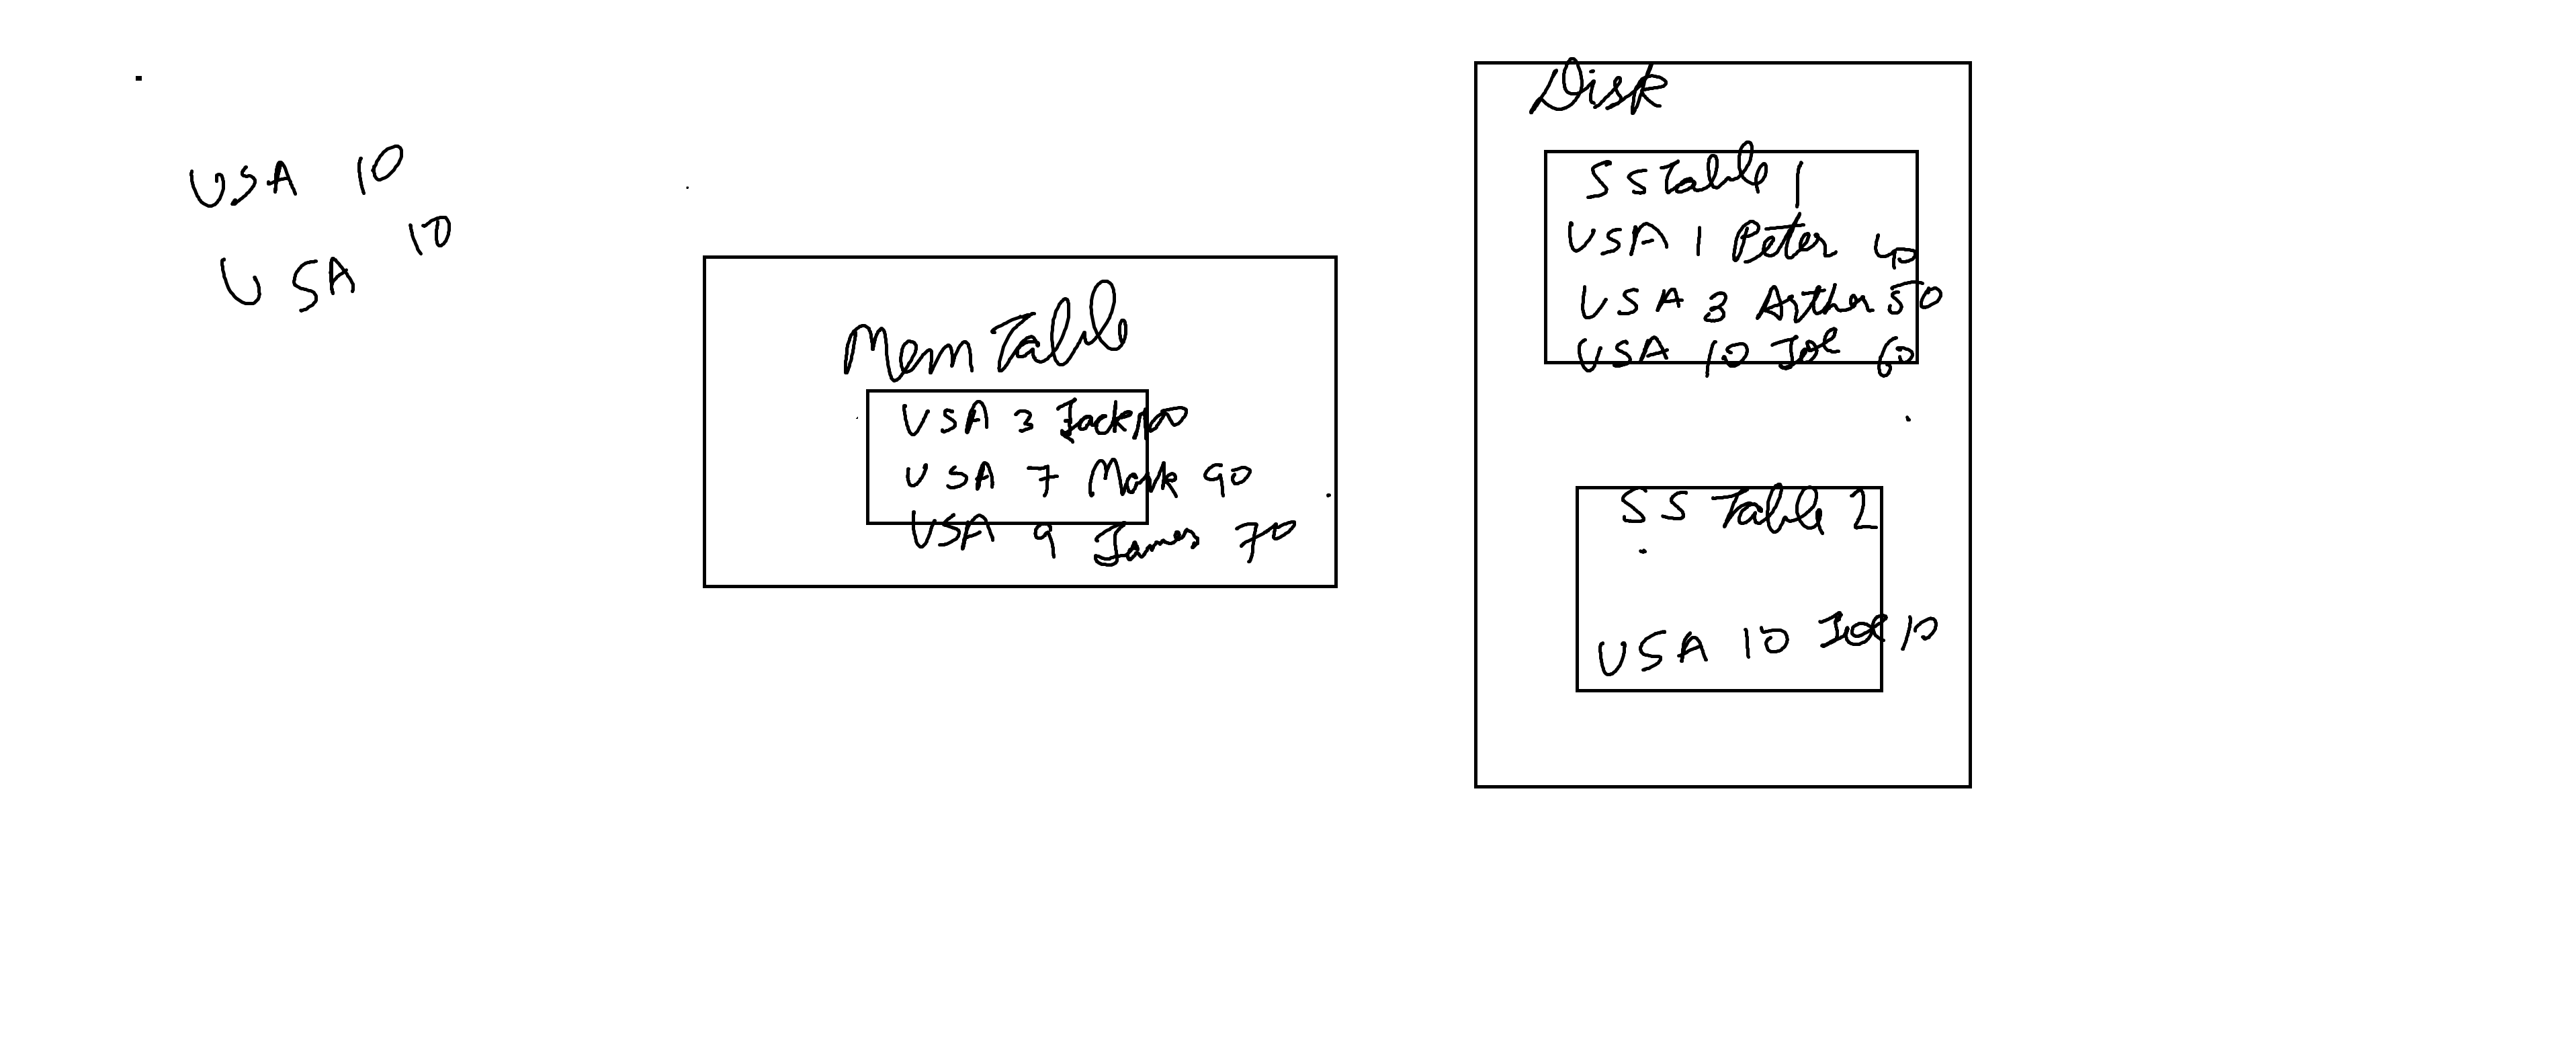 USA 10
USA 10
Mem Table
USA 3 Jack 100
USA 7 Mark 90
USA 9 James 70
Disk
SS Table 1
USA 1 Peter 40
USA 3 Arthur 50
USA 10 Joe 60
SS Table 2
USA 10 Joe 10